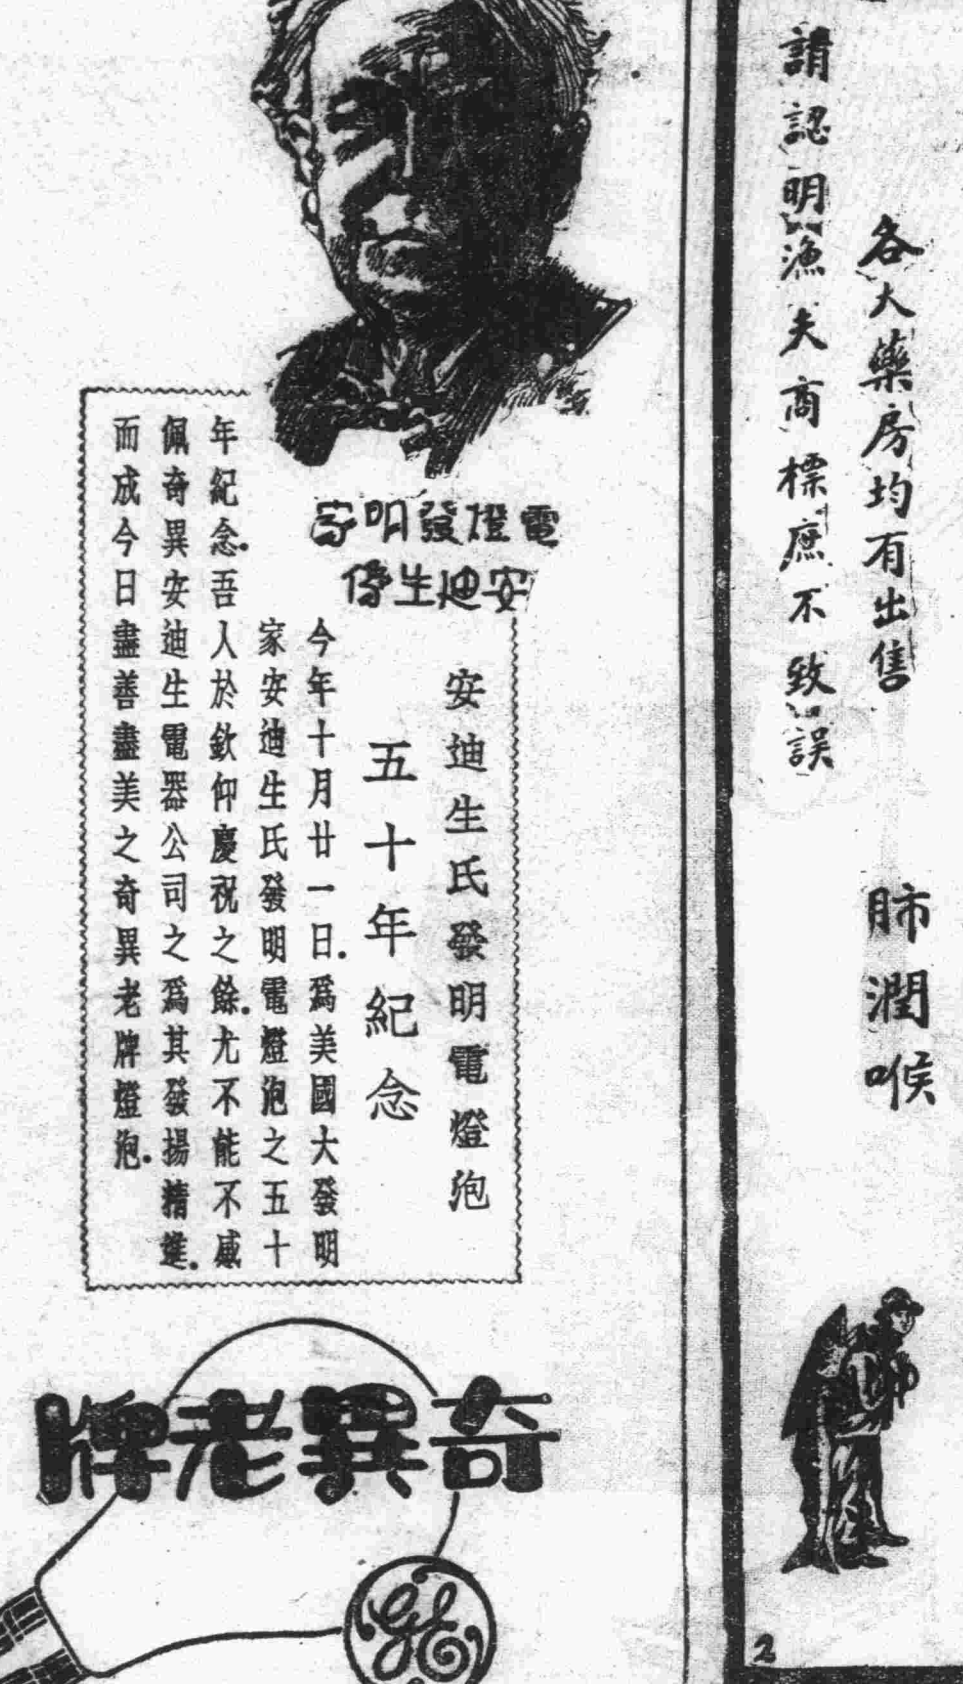 各大藥房均有出售
請認明漁夫商標庶不致誤
肺潤喉
電燈發明家
安迪生像
安迪生氏發明電燈泡
五十年紀念
今年十月廿一日.爲美國大發明
家安迪生氏發明電燈泡之五十
年紀念.吾人於欽仰慶祝之餘.尤不能不感
佩奇異安迪生電器公司之爲其發揚精進.
而成今日盡善盡美之奇異老牌燈泡.
奇異老牌
GE
2